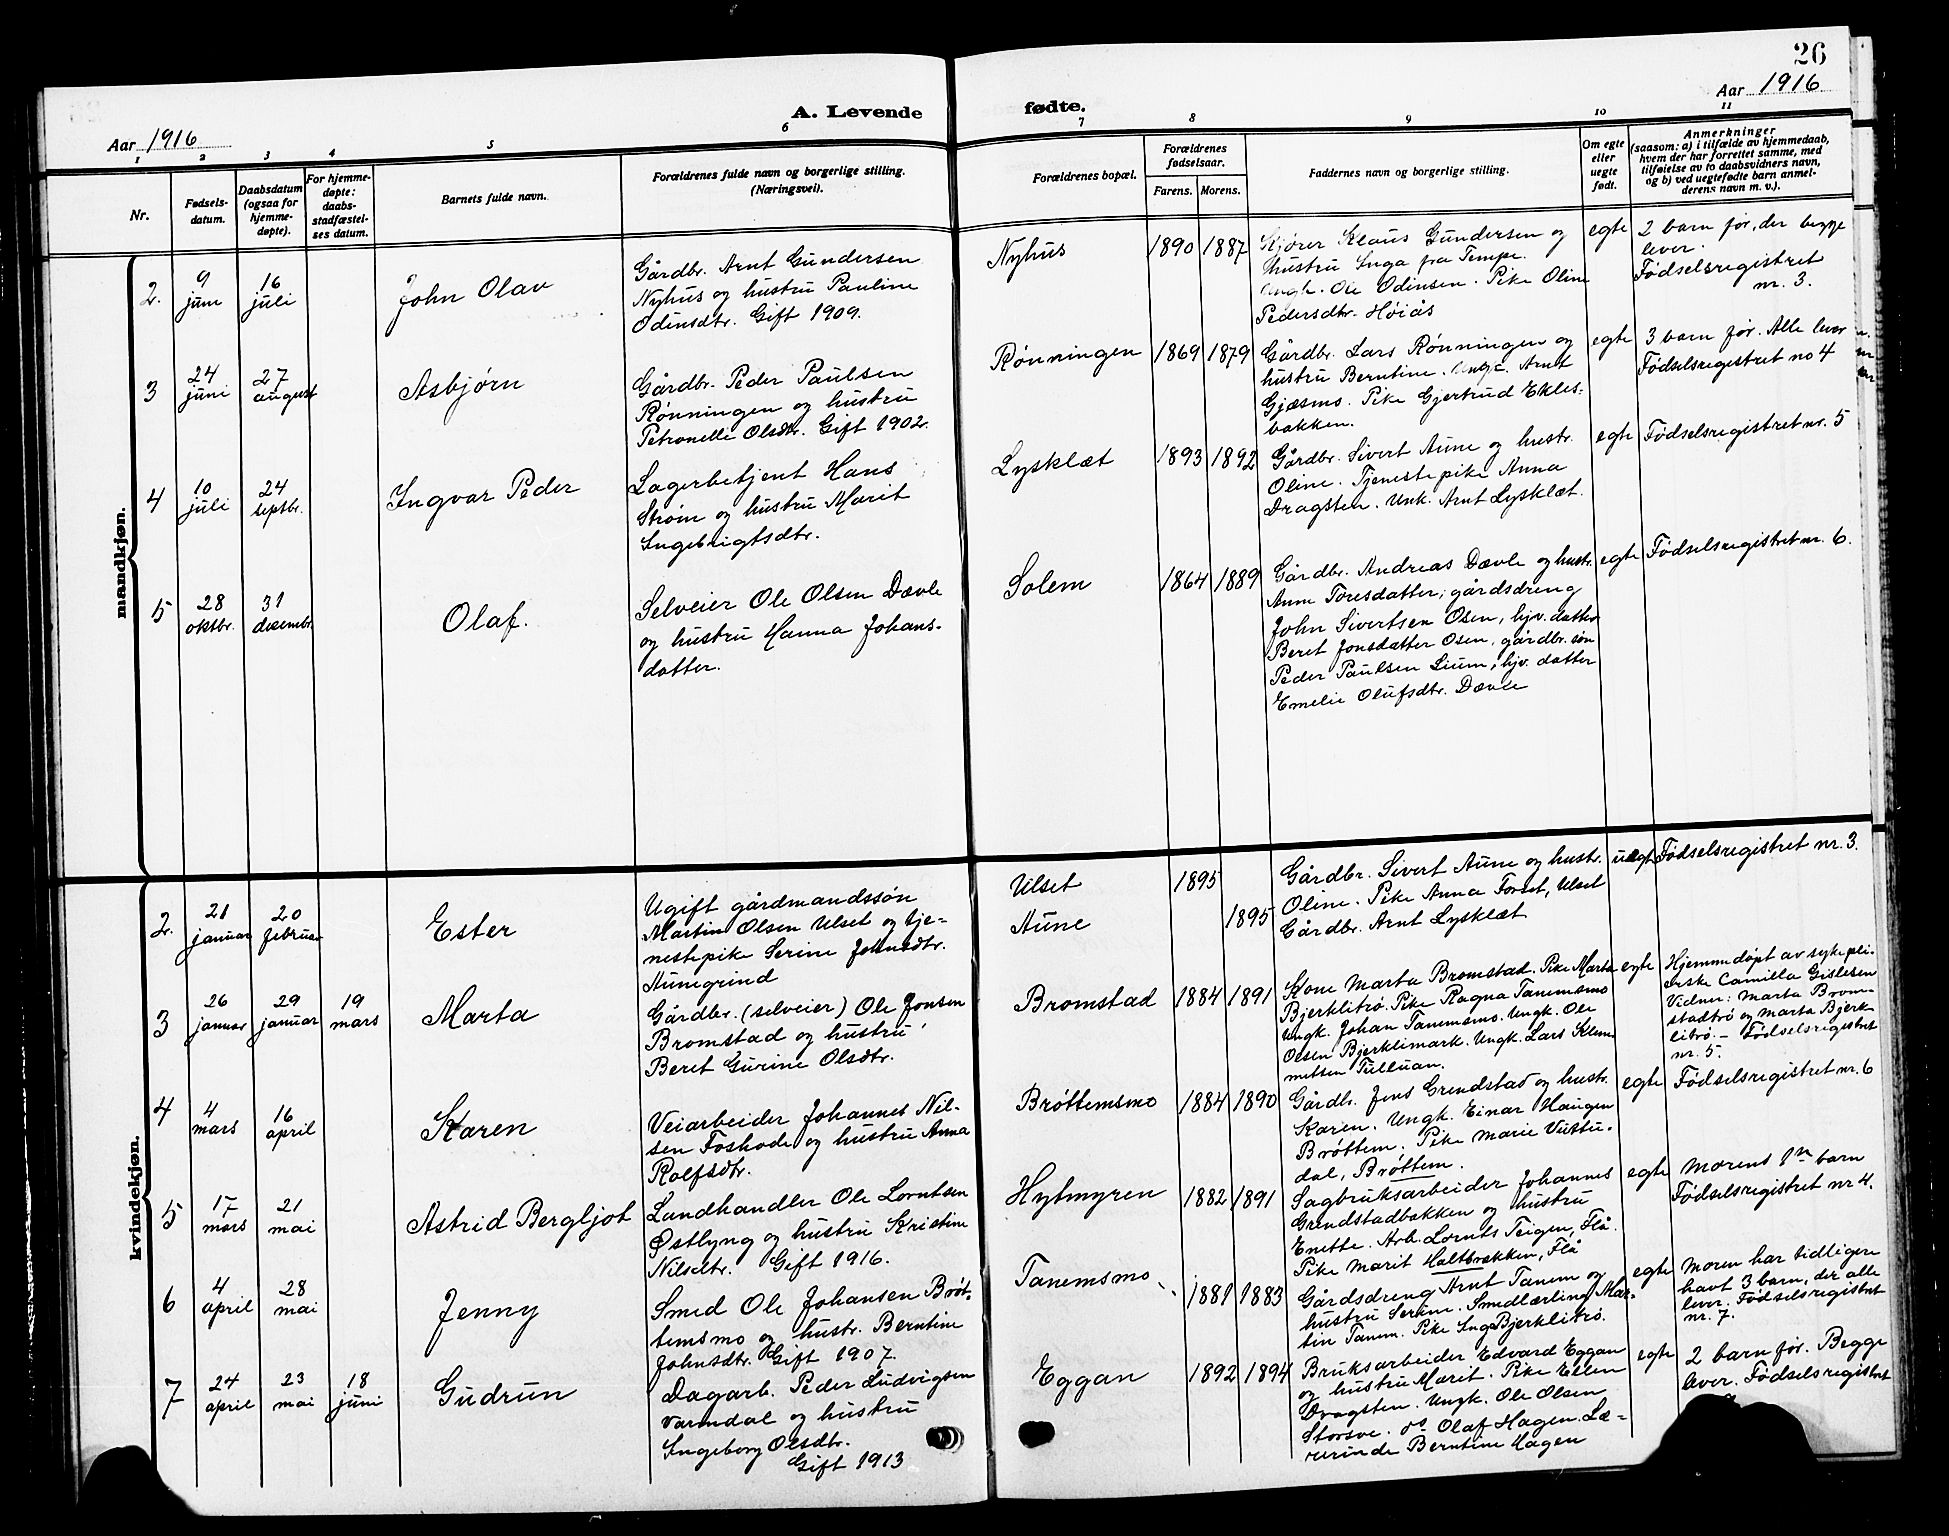 26
A. Levende fødte.
Aar 1916
Aar 1916
1 2 3 4 5 6 7 8 9 10 11
Nr.
Fødsels-
datum.
Daabsdatum
(ogsaa for
hjemme-
døpte).
For hjemme-
døpte:
daabs-
stadfæstel-
ses datum.
Barnets fulde navn.
Forældrenes fulde navn og borgerlige stilling.
(Næringsvei).
Forældrenes bopæl.
Forældrenes
fødselsaar.
Farens. Morens.
Faddernes navn og borgerlige stilling.
Om egte
eller
uegte
født.
Anmerkninger
(saasom: a) i tilfælde av hjemmedaab,
hvem der har forrettet samme, med
tilføielse av to daabsvidners navn,
og b) ved uegtefødte barn anmel-
derens navn m. v.).
mandkjøn.
2. 9 juni 16 juli John Olav
Gårdbr. Arnt Gundersen
Nyhus og hustru Pauline
Odinsdtr. Gift 1909.
Nyhus 1890 1887
Kjører Klaus Gundersen og
hustru Inga fra Tempe.
Ungk. Ole Odinsen. Pike Oline
Pedersdtr. Høiås
egte
2 barn før, der begge
lever.
Fødselsregistret
nr. 3.
3 24 juni 27 august Asbjørn
Gårdbr. Peder Paulsen
Rønningen og hustru
Petronelle Olsdtr. Gift 1902.
Rønningen 1869 1879
Gårdbr. Lars Rønningen og
hustru Berntine. Ungk. Arnt
Gjæsmo. Pike Gjertrud Ekles-
bakken.
egte
3 barn før. Alle lever
Fødselsregistret no 4
4 10 juli 24 septbr. Ingvar Peder
Lagerbetjent Hans
Strøm og hustru Marit
Ingebrigtsdtr.
Lysklæt 1893 1892
Gårdbr. Sivert Aune og hustr.
Oline. Tjenestepike Anna
Dragsten. Unk. Arnt Lysklæt.
egte
Fødselsregistret nr. 5
5 28 oktbr. 31 desembr. Olaf.
Selveier Ole Olsen Dævle
og hustru Hanna Johans-
datter.
Solem 1864 1889
Gårdbr. Andreas Dævle og hustr.
Anne Toresdatter; gårdsdreng
John Sivertsen Osen, hjv. datter
Beret Jonsdatter Osen, gårdbr. søn
Peder Paulsen Lium, hjv. datter
Emelie Olufsdtr. Dævle
egte
Fødselsregistret nr. 6.
kvindekjøn.
2. 21 januar 20 februar Ester
Ugift gårdmandssøn
Martin Olsen Ulset og tje-
nestepike Serine Johnsdtr.
Aunegrind
Ulset 1895
Aune 1895
Gårdbr. Sivert Aune og hustr.
Oline. Pike Anna Forset, Ulset
Gårdbr. Arnt Lysklæt
uegte
Fødselsregistret nr. 3.
3 26 januar 29 januar 19 mars Marta
Gårdbr. (selveier) Ole Jonsen
Bromstad og hustru
Beret Gurine Olsdtr.
Bromstad 1884 1891
Kone Marta Bromstad. Pike Marta
Bjerklitrø. Pike Ragna Tanemsmo
Ungk. Johan Tanemsmo. Ungk. Ole
Olsen Bjerklimark. Ungk. Lars Klem-
metsen Tulluan.
egte
Hjemmedøpt av sykeplei-
erske Camilla Gislesen
Vidner: Marta Brom-
stadtrø og Marta Bjerk-
litrø. – Fødselsregistret
nr. 5.
4 4 mars 16 april Karen
Veiarbeider Johannes Nil-
sen Foskode og hustru Anna
Rolfsdtr.
Brøttemsmo 1884 1890
Gårdb. Jens Grendstad og hustr.
Karen. Ungk. Einar Haugen
Brøttem. Pike Marie Vuttu-
dal, Brøttem.
egte
Fødselsregistret nr. 6
5 17 mars 21 mai Astrid Bergljot
Landhandler Ole Lorntsen
Østlyng og hustru Kristine
Nilsdtr. Gift 1916.
Hytmyren 1882 1891
Sagbruksarbeider Johannes
Grendstadbakken og hustru
Enette. Arb. Lornts Teigen, Flå.
Pike Marit Haltbakken, Flå
egte
Morens 1ste barn
Fødselsregistret nr 4.
6 4 april 28 mai Jenny
Smed Ole Johansen Brøt-
temsmo og hustr. Berntine
Johnsdtr. Gift 1907.
Tanemsmo 1881 1883
Gårdsdreng Arnt Tanem og
hustru Serine. Smedlærling Mar-
tin Tanem. Pike Inga Bjerklitrø.
egte
Moren har tidligere
havt 3 barn, der alle
lever. Fødselsregistret
nr. 7.
7 24 april 23 mai 18 juni Gudrun
Dagarb. Peder Ludvigsen
Varmdal og hustru
Ingeborg Olsdtr.
Gift 1913
Eggan 1892 1894
Bruksarbeider Edvard Eggan
og hustru Marit. Pike Ellen
Dragsten. Ungk. Ole Olsen
Storsve. do Olaf Hagen. Læ-
rerinde Berntine Hagen
egte
2 barn før. Begge
lever. Fødselsregistret